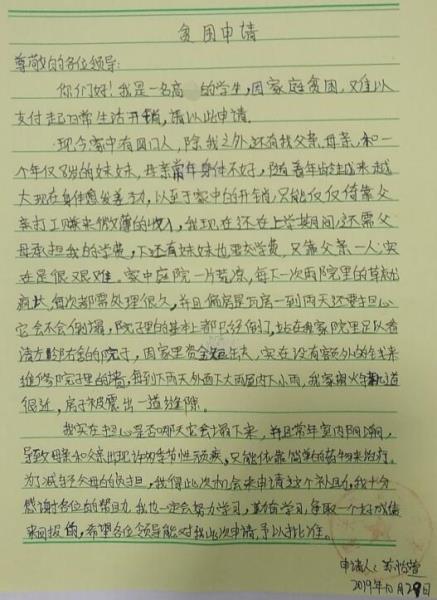 贫困申请
尊敬的各位领导:
你们好!我是一名高 的学生,因家庭贫困,难以
支付起日常生活开销,请以此申请。
现今家中有四口人,除我之外,还有我父亲,母亲,和一
个年仅8岁的妹妹,母亲常年身体不好,随着年龄越来越
大现在身体愈发差劲,以至于家中的开销只能仅仅倚靠父
亲打工赚来微薄的收入,我现在还在上学期间,还需父
母承担我的学费,下还有妹妹也要交学费,又靠父亲一人,实
在是很艰难。家中庭院一片荒凉,每下一次雨院里的草就
疯长,每次都需处理很久,并且偏房是瓦房一到雨天还要担心
它会不会倒塌,院子里的墙基本上都已经倒了,站在我家院里足以看
清左邻右舍的院子,因家里资金短缺,实在没有额外的钱来
维修院子里的墙,每到下雨天外面下大雨屋内下小雨,我家离火车轨道
很近,房子被震出一道道缝隙。
我实在担心是否哪天它会塌下来,并且常年室内阴潮,
导致母亲和父亲出现许多季节性顽疾,只能依靠简单的药物来治疗。
为了减轻父母的负担,我借此次机会来申请这个补助,我十分
感谢各位的帮助,我也一定会努力学习,勤奋学习,争取一个好成绩
来回报 ,希望各位领导能对我此次申请,予以批准。
申请人:
2019年10月29日